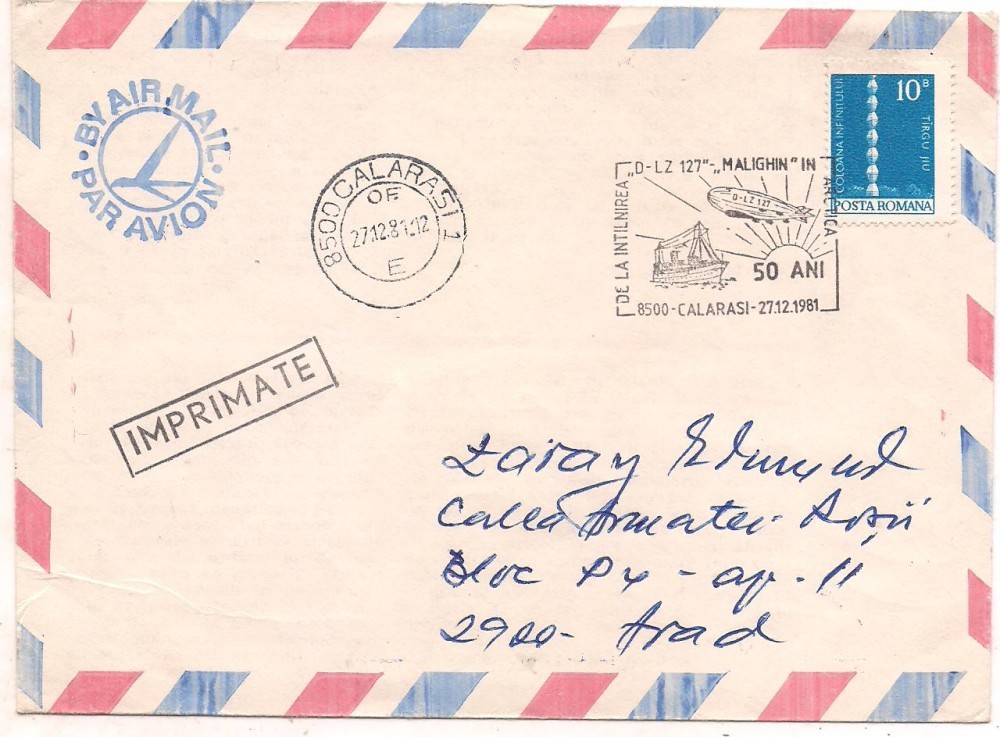 BY AIR MAIL
PAR AVION
8500 CALARASI 1
OF
27.12.81.12
E
DE LA INTILNIREA „D-LZ 127"-„MALIGHIN" IN ARCTICA
D-LZ 127
50 ANI
8500-CALARASI-27.12.1981
10B
COLOANA INFINITULUI
TÎRGU JIU
POSTA ROMANA
IMPRIMATE
Zaray Edmund
Calea Armatei Roșii
Bloc Px - ap. 11
2900- Arad